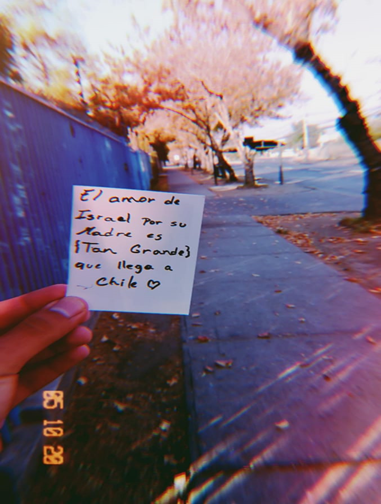 El amor de
Israel Por su
Madre es
{Tan Grande}
que llega a
Chile ♡
05 10 20